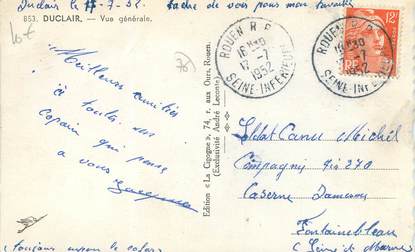 Duclair le 17-7-52.
853. DUCLAIR. — Vue générale.
10€
76
ROUEN R.P.
16H30
17 -7
1952
SEINE-INFERIEURE
ROUEN R.P.
16H30
-7
1952
SEINE-INF
12F
Meilleures amitiés
à toutes
copain qui pense
a vous
Edition « La Cigogne », 74, r. aux Ours, Rouen.
(Exclusivité André Leconte)
Soldat Canu Michel
Compagny 270
Caserne Damesme
Fontainebleau
(Seine et Marne)
(toujours